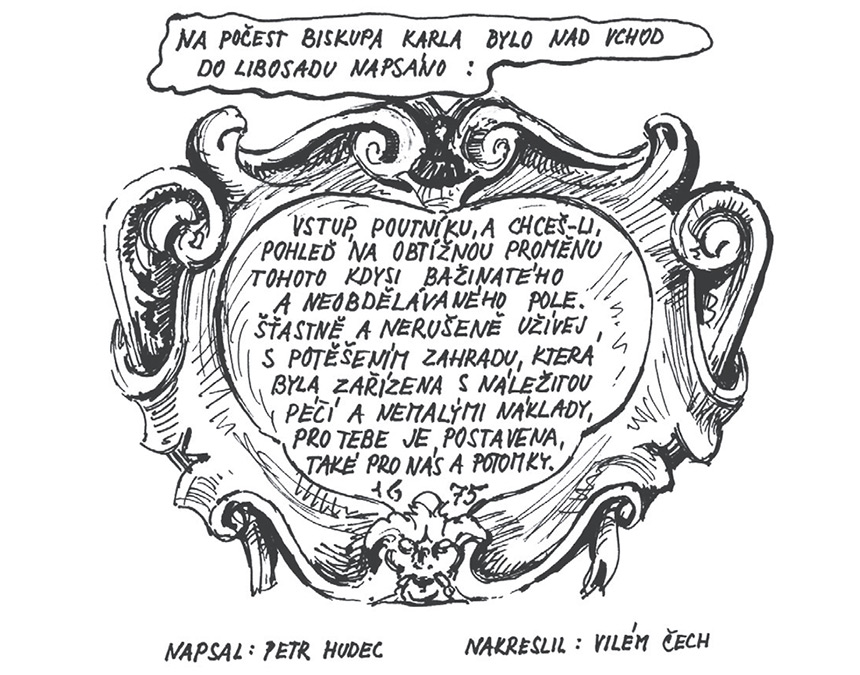 NA POČEST BISKUPA KARLA BYLO NAD VCHOD
DO LIBOSADU NAPSÁNO :
VSTUP, POUTNÍKU, A CHCEŠ-LI,
POHLEĎ NA OBTÍŽNOU PROMĚNU
TOHOTO KDYSI BAŽINATÉHO
A NEOBDĚLÁVANÉHO POLE.
ŠŤASTNĚ A NERUŠENĚ UŽÍVEJ,
S POTĚŠENÍM ZAHRADU, KTERÁ
BYLA ZAŘÍZENA S NÁLEŽITOU
PÉČÍ A NEMALÝMI NÁKLADY,
PRO TEBE JE POSTAVENA,
TAKÉ PRO NÁS A POTOMKY.
16 75
NAPSAL: PETR HUDEC
NAKRESLIL: VILÉM ČECH